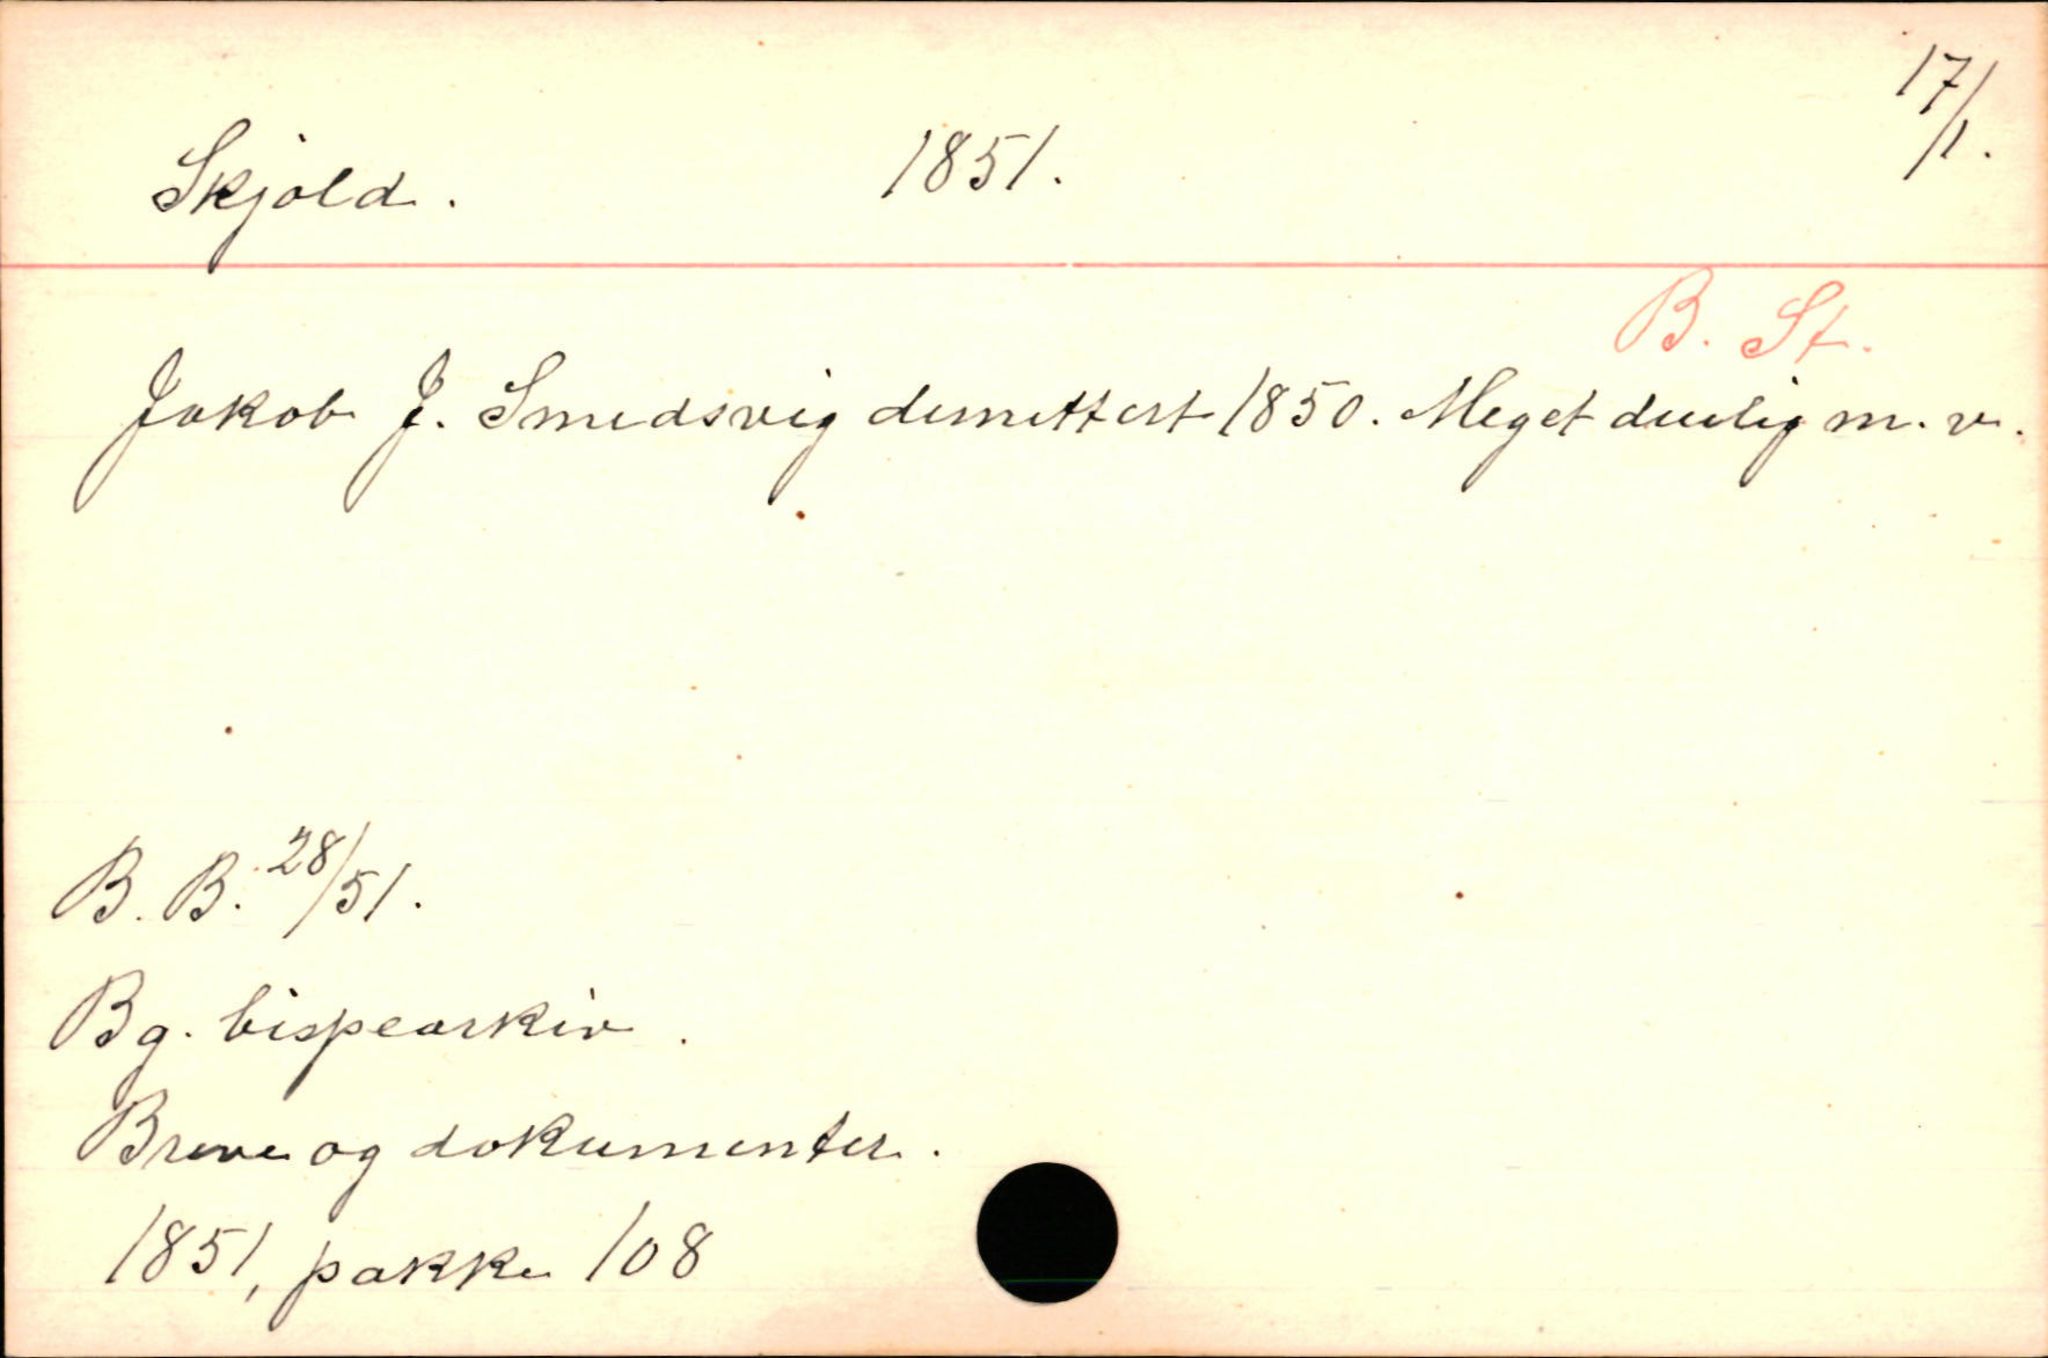 Skjold. 1851. 17/1.
B. St.
Jakob J. Smedsvig demittert 1850. Meget duelig m. v.
B. B. 28/51.
Bg. bispearkiv.
Breve og dokumenter.
1851, pakke 108